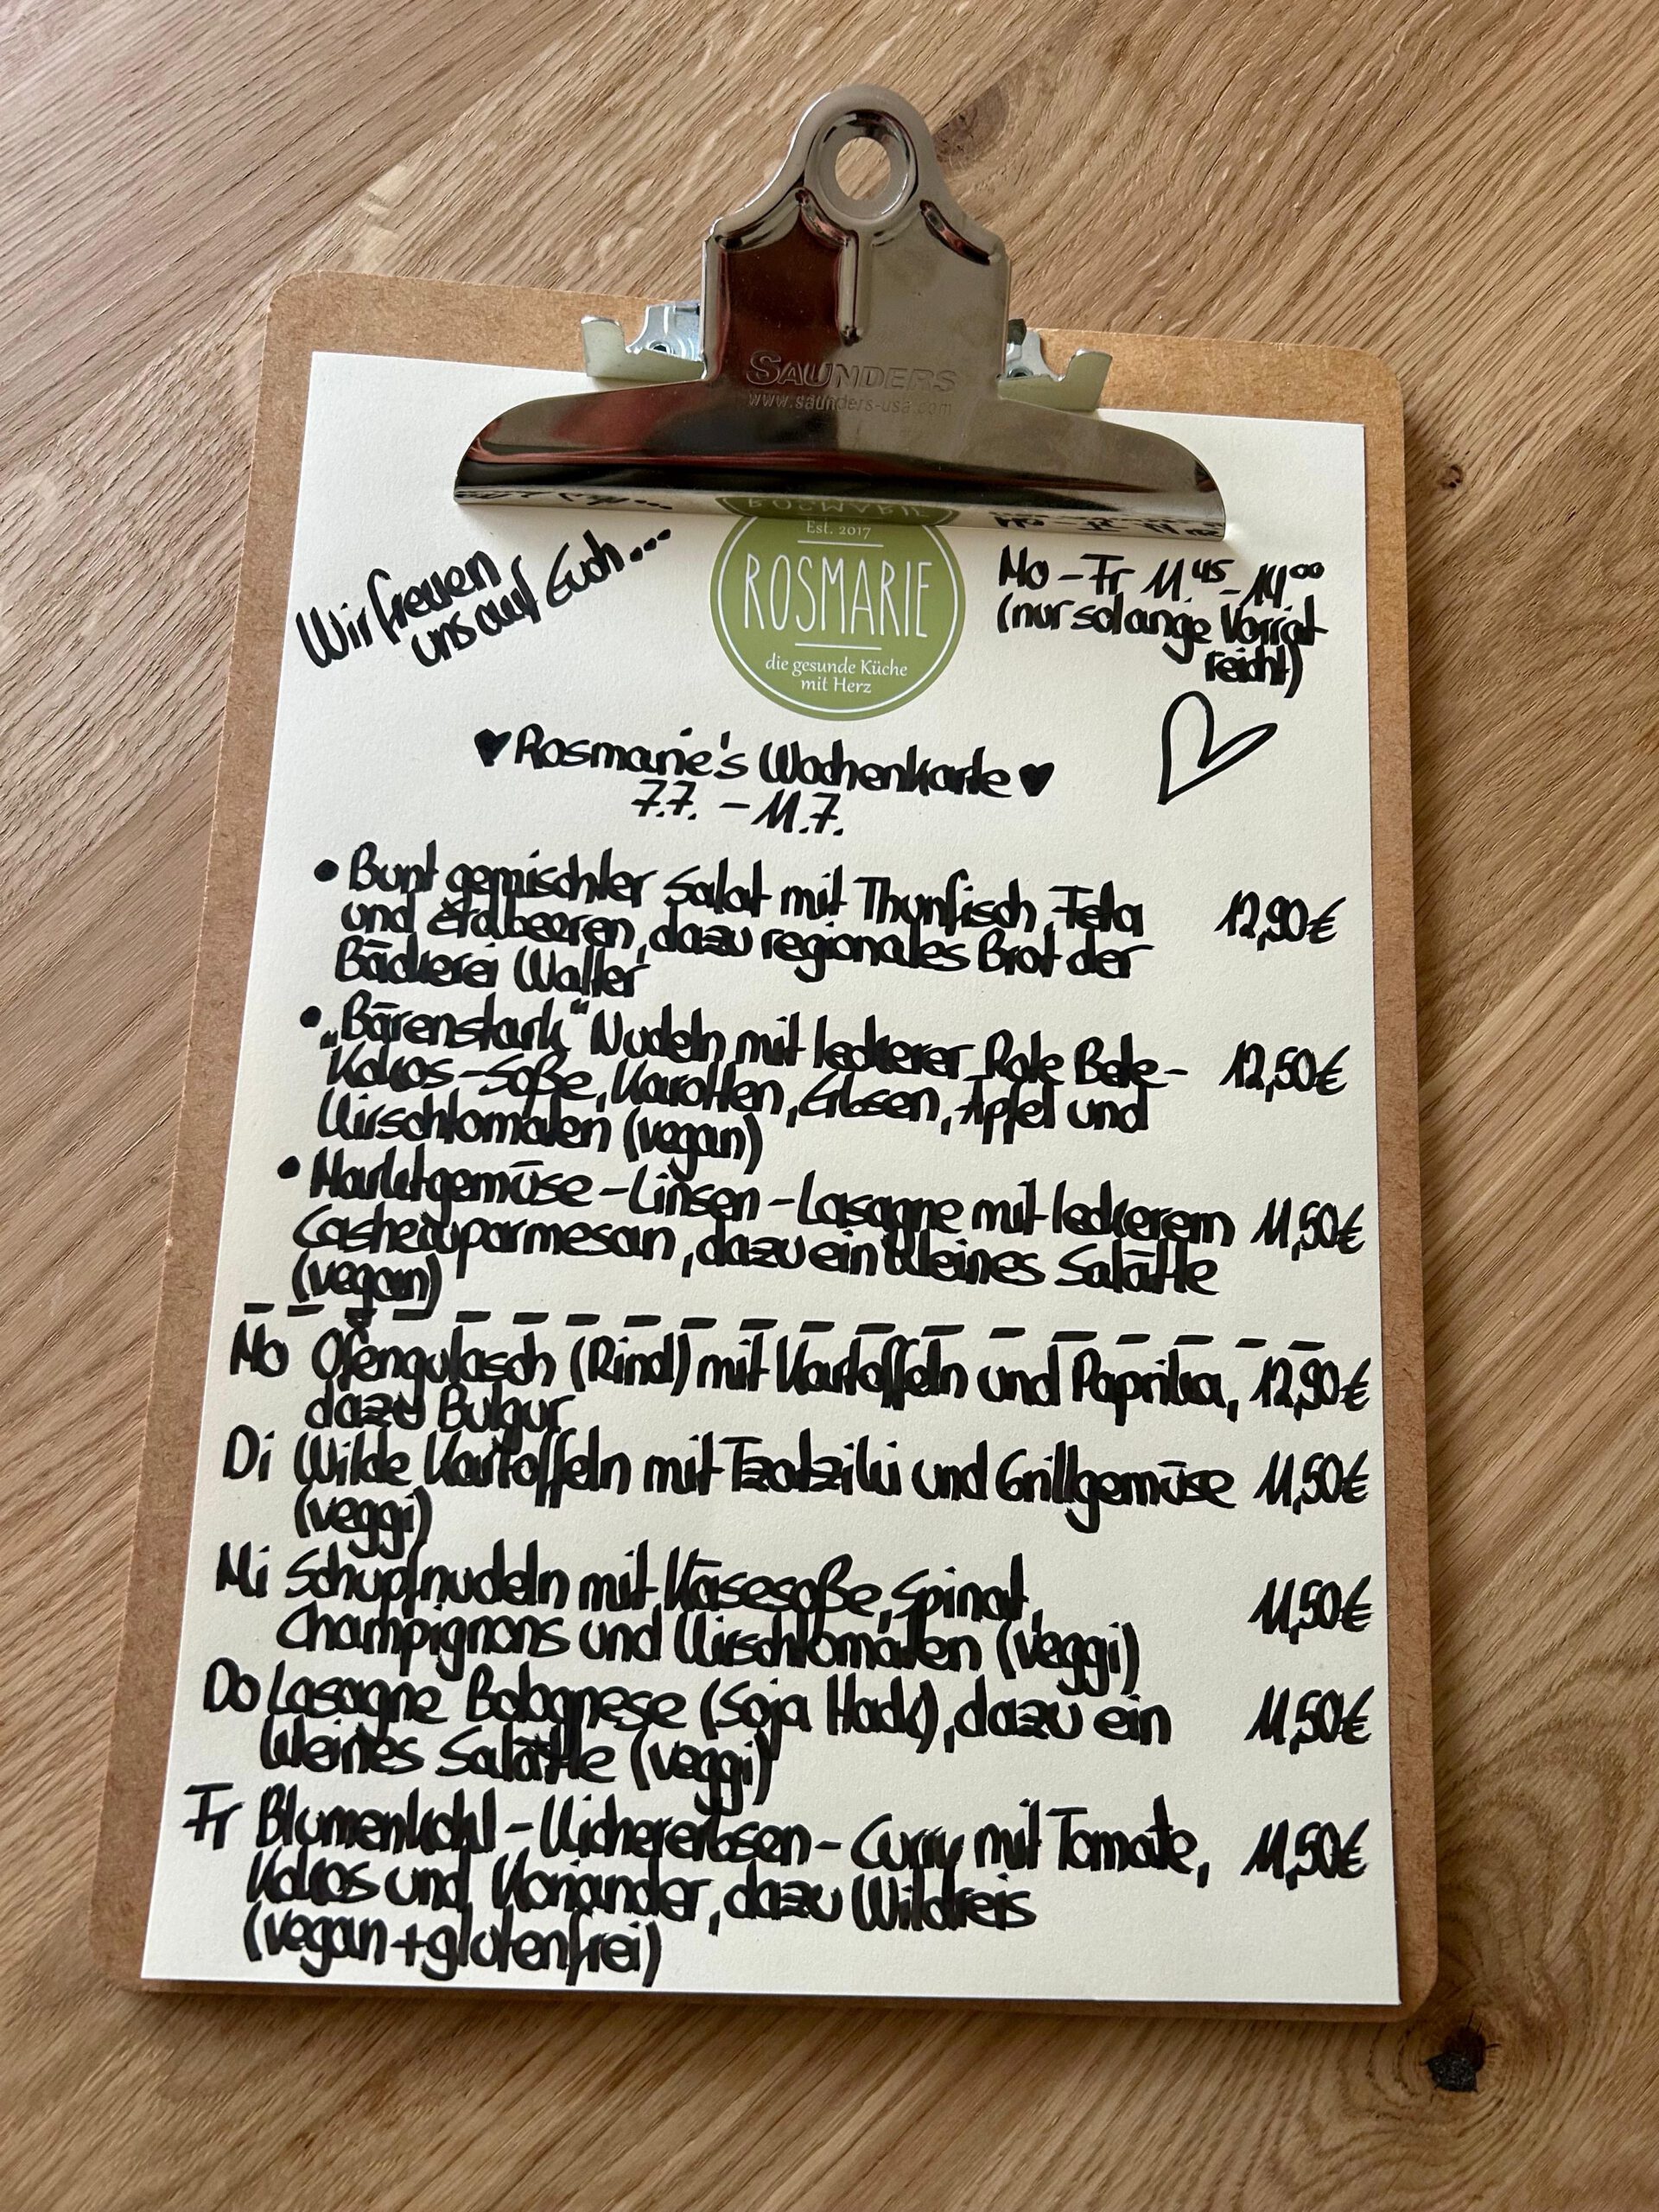 SAUNDERS
www.saunders-usa.com
Wir freuen
uns auf Euch...
Est. 2017
ROSMARIE
die gesunde Küche
mit Herz
Mo-Fr 11.45-14.00
(nur solange Vorrat
reicht)
♥Rosmarie's Wochenkarte♥
7.7. - 11.7.
• Bunt gemischter Salat mit Thunfisch, Feta 12,90€
und Erdbeeren, dazu regionales Brot der
Bäckerei Walter
• „Bärenstark" Nudeln mit leckerer Rote Bete- 12,50€
Kokos-Soße, Karotten, Erbsen, Apfel und
Kirschtomaten (vegan)
• Marktgemüse-Linsen-Lasagne mit leckerem 11,50€
Cashewparmesan, dazu ein kleines Salätle
(vegan)
Mo Ofengulasch (Rind) mit Kartoffeln und Paprika, 12,90€
dazu Bulgur
Di Wilde Kartoffeln mit Tzatziki und Grillgemüse 11,50€
(veggi)
Mi Schupfnudeln mit Käsesoße, Spinat, 11,50€
Champignons und Kirschtomaten (veggi)
Do Lasagne Bolognese (Soja Hack), dazu ein 11,50€
kleines Salätle (veggi)
Fr Blumenkohl-Kichererbsen-Curry mit Tomate, 11,50€
Kokos und Koriander, dazu Wildreis
(vegan+glutenfrei)